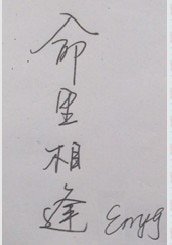 命里相逢